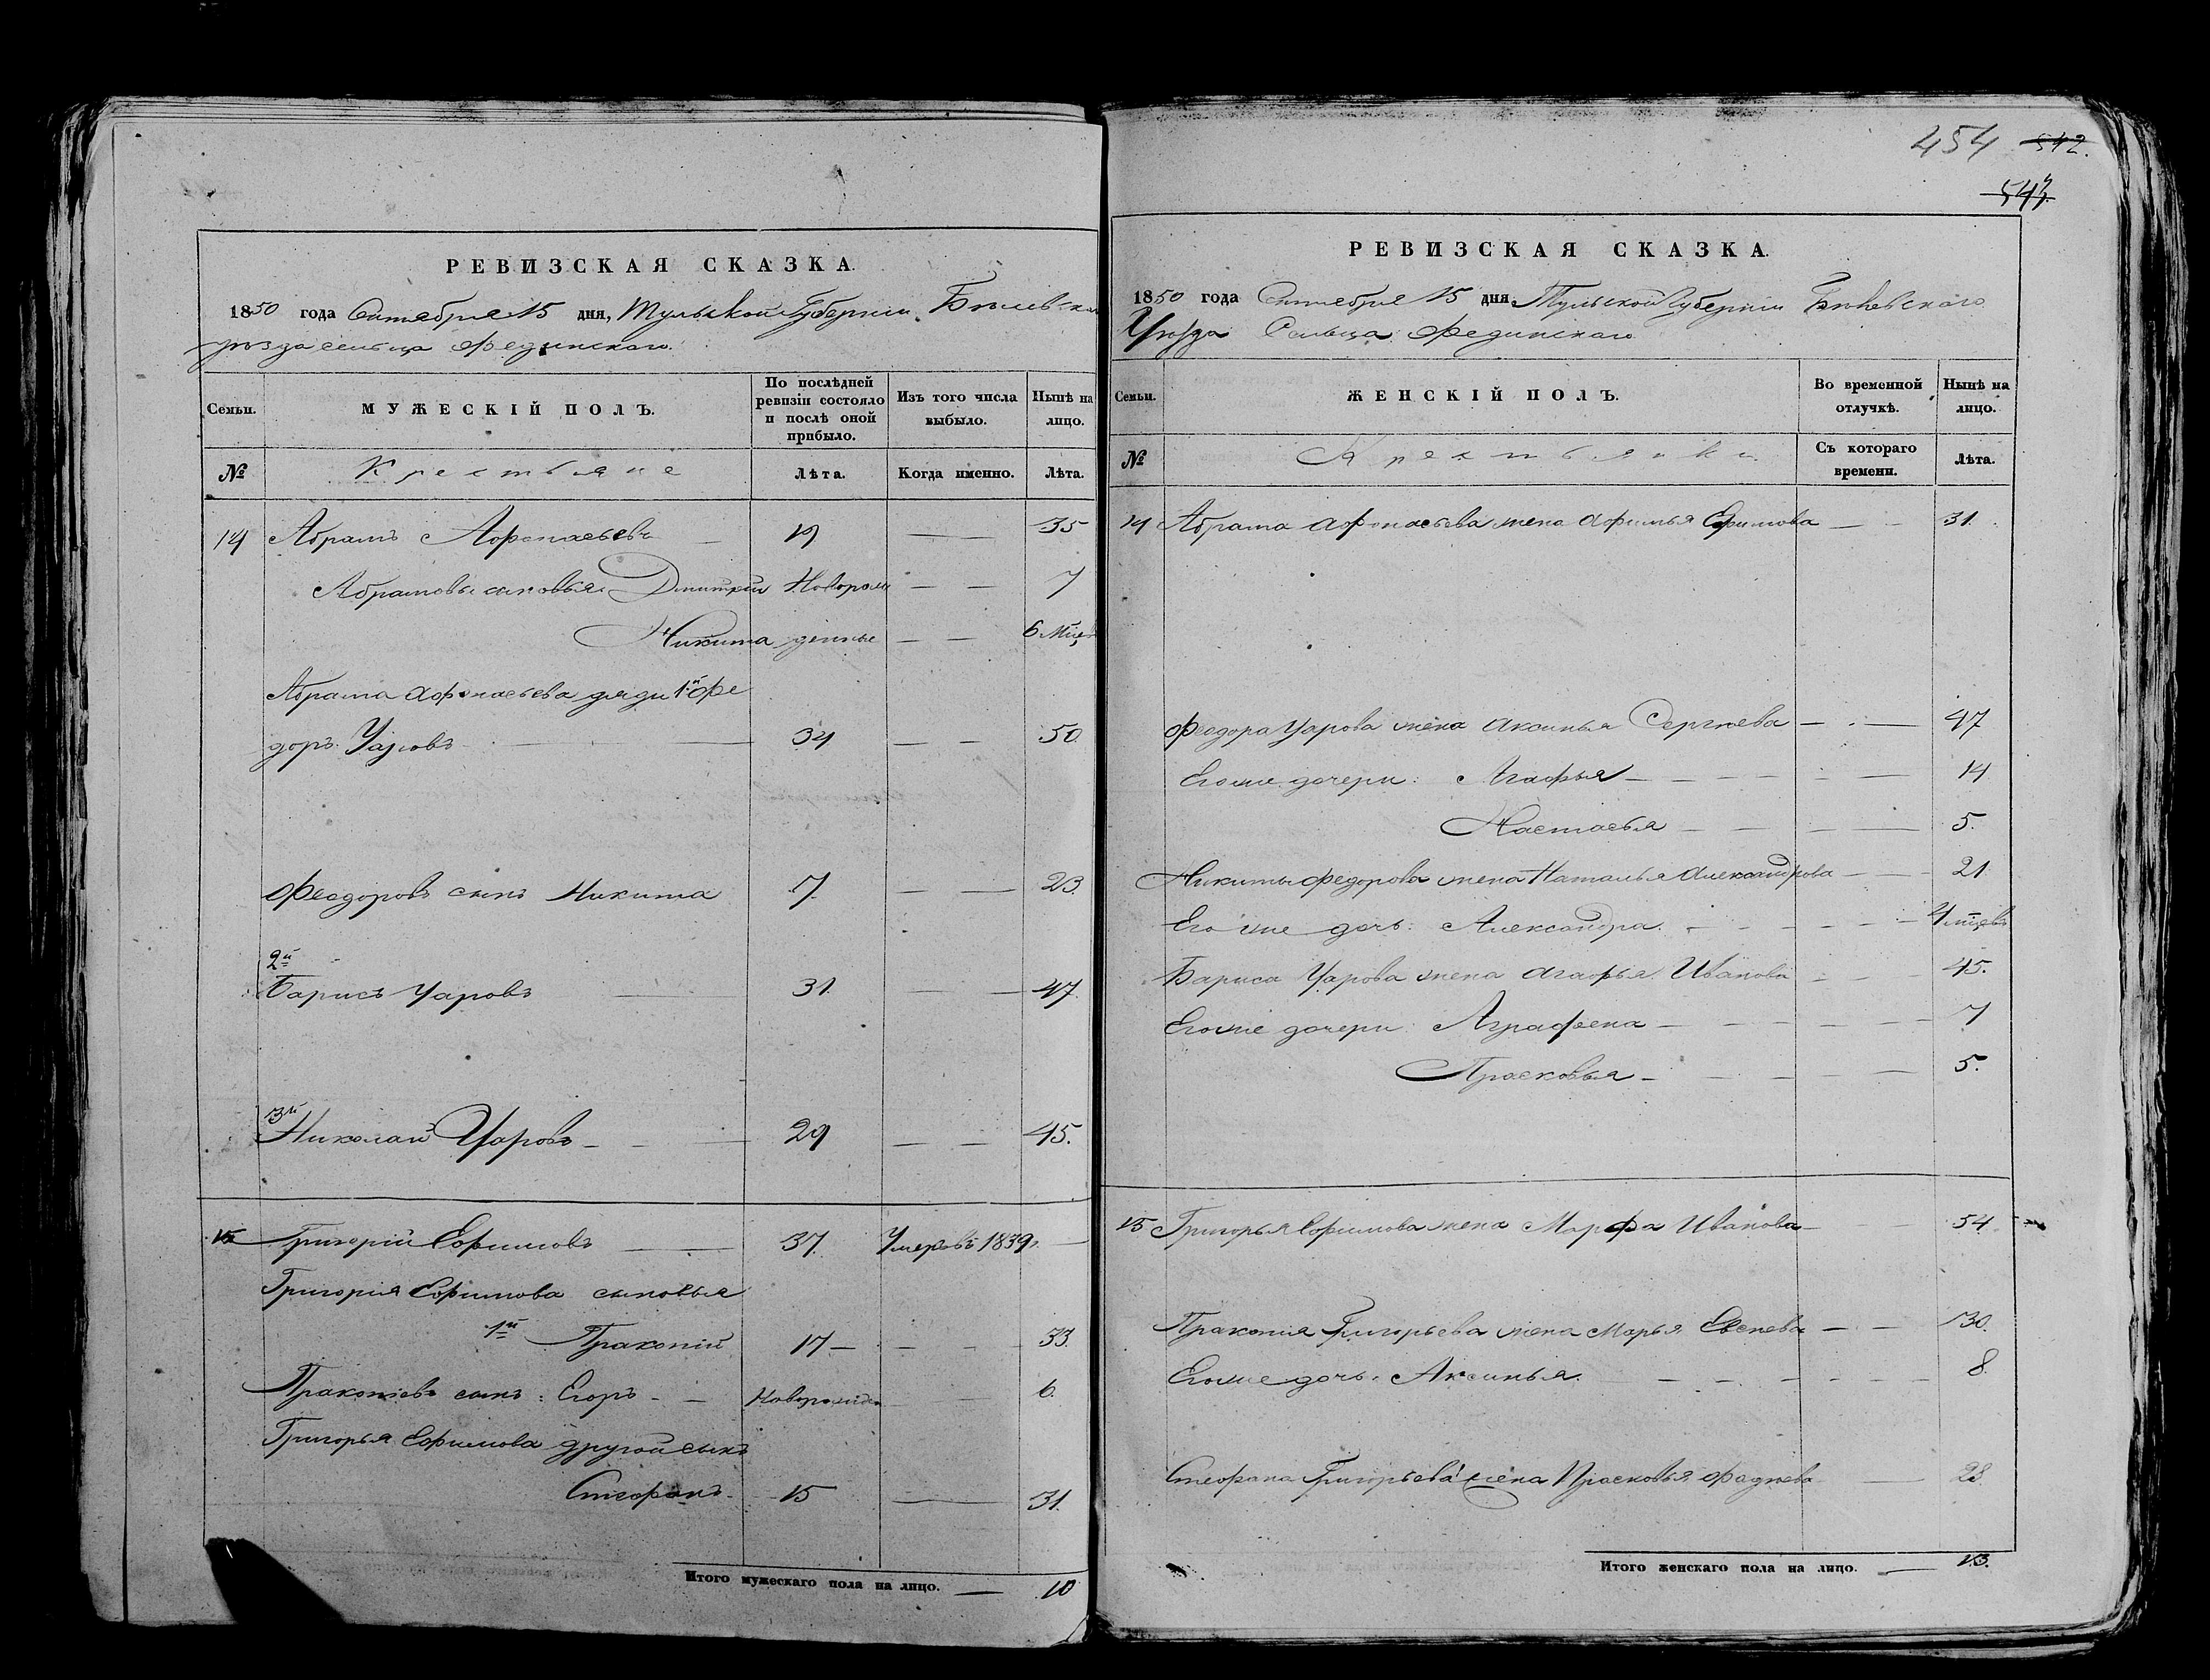 РЕВИЗСКАЯ СКАЗКА.
1850 года Сентября 15 дня, Тульской Губернии Белевска
уезда сельца Фединскаго.
Семьи. МУЖЕСКІЙ ПОЛЪ. По послѣдней ревизіи состояло и послѣ оной прибыло. Изъ того числа выбыло. Нынѣ на лицо.
№ Крестьяне Лѣта. Когда именно. Лѣта.
14 Абрамъ Афонасьевъ 19 35
Абрамовы сыновья Дмитрій Новорож 7
Никита денные 6 Мцев
Абрама Афонасьева дяди 1й Фе
доръ Уаровъ 34 50.
Феодоровъ сынъ Никита 7. 23.
2й
Барисъ Уаровъ 31. 47
3й
Николай Уаровъ 29 45.
15 Григорій Ефимовъ 37. Умеръ въ 1839г.
Григорія Ефимова сыновья
1й Пракопій 17 33.
Пракопіевъ сынъ: Егоръ Новорожде 6.
Григорья Ефимова другой сынъ
Стефанъ 15 31.
Итого мужескаго пола на лицо. 10
454 542.
543.
РЕВИЗСКАЯ СКАЗКА.
1850 года Сентября 15 дня, Тульской Губерніи Белевскаго
Уезда Сельца Фединскаго
Семьи. ЖЕНСКІЙ ПОЛЪ. Во временной отлучкѣ. Нынѣ на лицо.
№ Крестьянки. Съ котораго времени. Лѣта.
14 Абрама Афонасьева жена Афимья Ефимова 31.
Феодора Уарова жена Аксинья Сергѣева 47
Егоже дочери: Агафья 14
Настасья 5.
Никиты Федорова жена Наталья Александрова 21
Его же дочь: Александра. 4 мцевъ
Бариса Уарова жена Агафья Иванова 45.
Егоже дочери: Аграфена 7
Прасковья 5.
15 Григорья Ефимова жена Марфа Иванова 54.
Пракопия Григорьева жена Марья Евсеева 30.
Егоже дочь: Аксинья. 8.
Стефана Григорьева жена Прасковья Фадѣева 28.
Итого женскаго пола на лицо. 13.